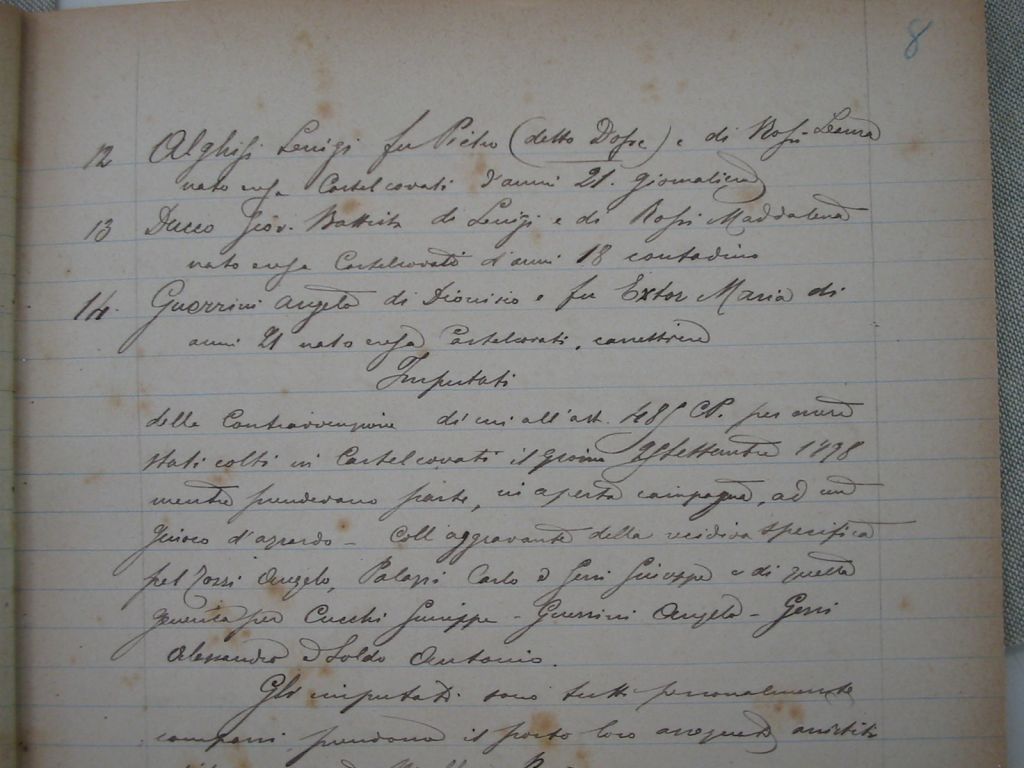 8
12 Alghisi Luigi fu Pietro (detto Dosse) e di Rossi Leura
nato e res. a Castelcovati d'anni 21. giornaliero
13 Ducco Giov. Battista di Luigi e di Rossi Maddalena
nato e res. a Castelcovati d'anni 18 contadino
14. Guerrini Angelo di Dionisio e fu Extor Maria di
anni 21 nato e res. a Castelcovati, carrettiere
Imputati
della Contravvenzione di cui all'art. 485 CP. per essere
stati colti in Castelcovati il giorno 25 Settembre 1898
mentre prendevano parte, in aperta campagna, ad un
giuoco d'azzardo - Coll'aggravante della recidiva specifica
pel Tossi Angelo, Palazzi Carlo e Gerri Giuseppe e di quella
generica per Cucchi Giuseppe - Guerrini Angelo - Gerri
Alessandro e Soldo Antonio.
Gli imputati sono tutti personalmente
comparsi prendono il posto loro assegnato assistiti